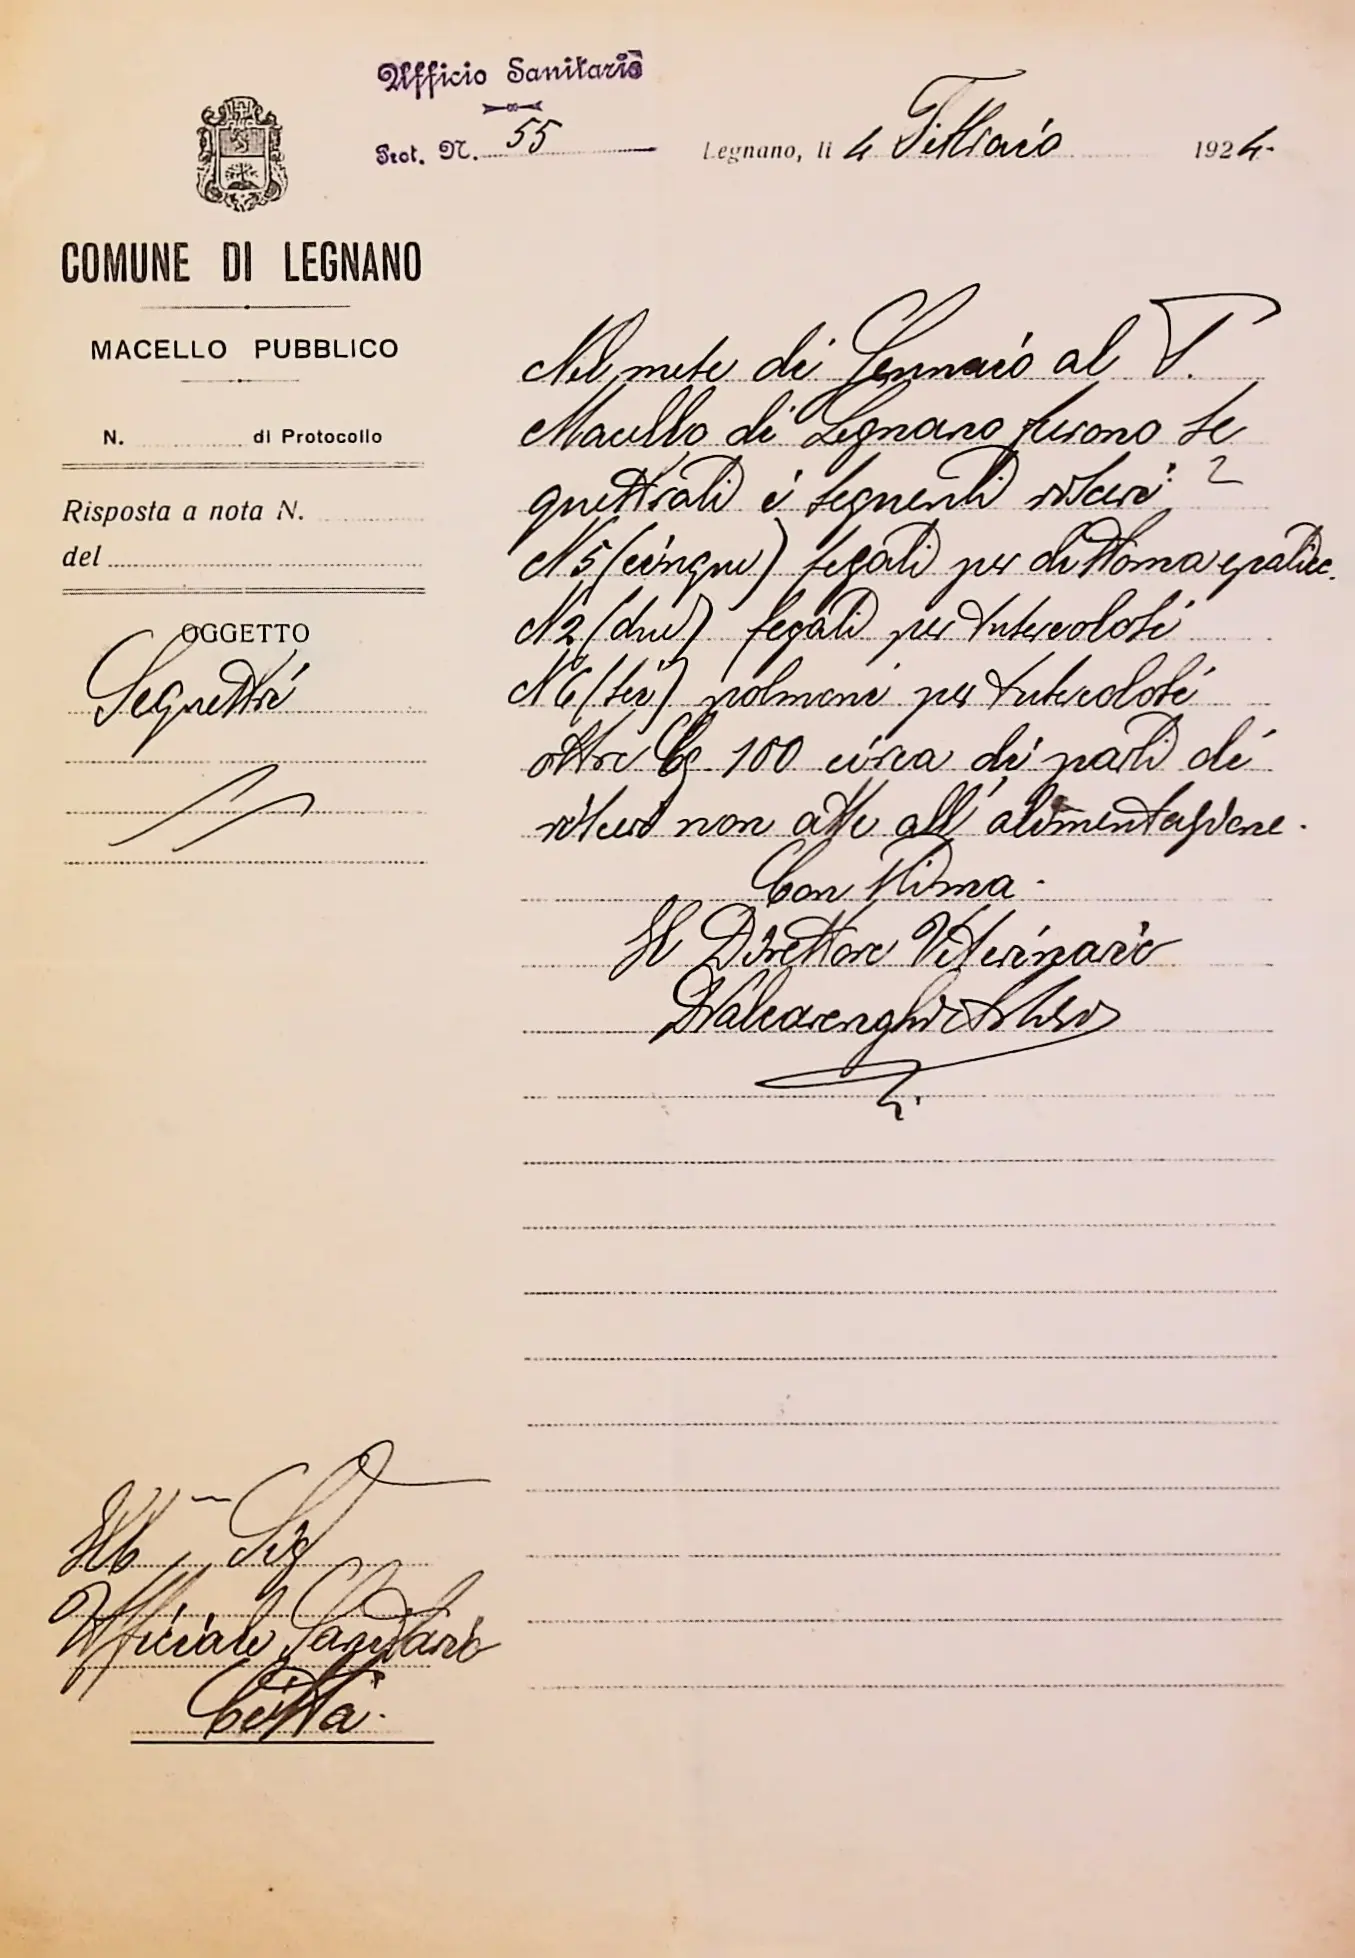 Ufficio Sanitario
Prot. N. 55
Legnano, li 4 Febbraio 1924
COMUNE DI LEGNANO
MACELLO PUBBLICO
N. di Protocollo
Risposta a nota N.
del
OGGETTO
Sequestri
Nel mese di Gennaio al P.
Macello di Legnano furono se
questrati i seguenti visceri:
N 5 (cinque) fegati per distoma epatico.
N 2 (due) fegati per tubercolosi
N 6 (sei) polmoni per tubercolosi
oltre Cg 100 circa di parti di
visceri non atte all'alimentazione.
Con stima.
Il Direttore Veterinario
Ill Sig
Ufficiale Sanitario
Città.